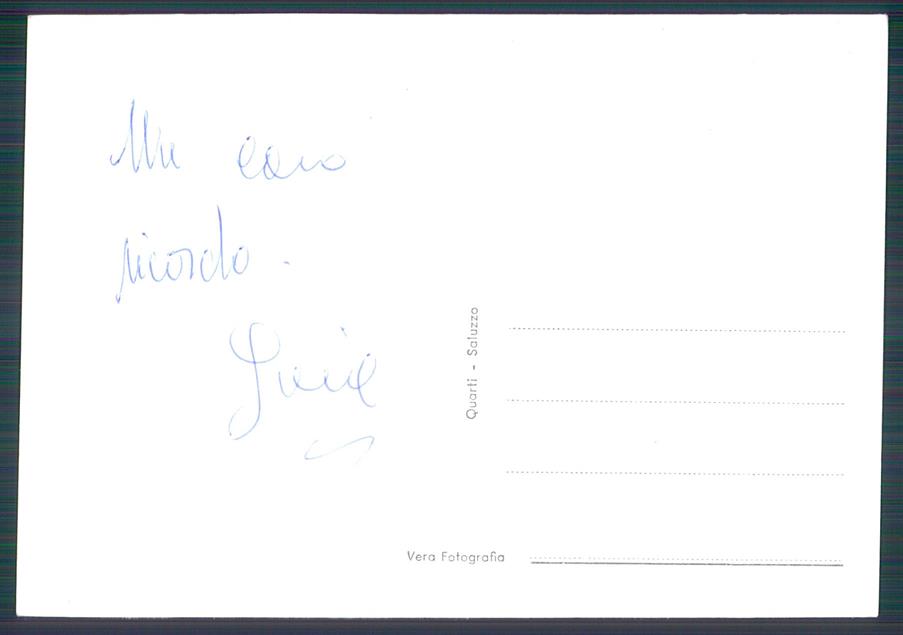 Un caro
ricordo.
Quarti - Saluzzo
Vera Fotografia